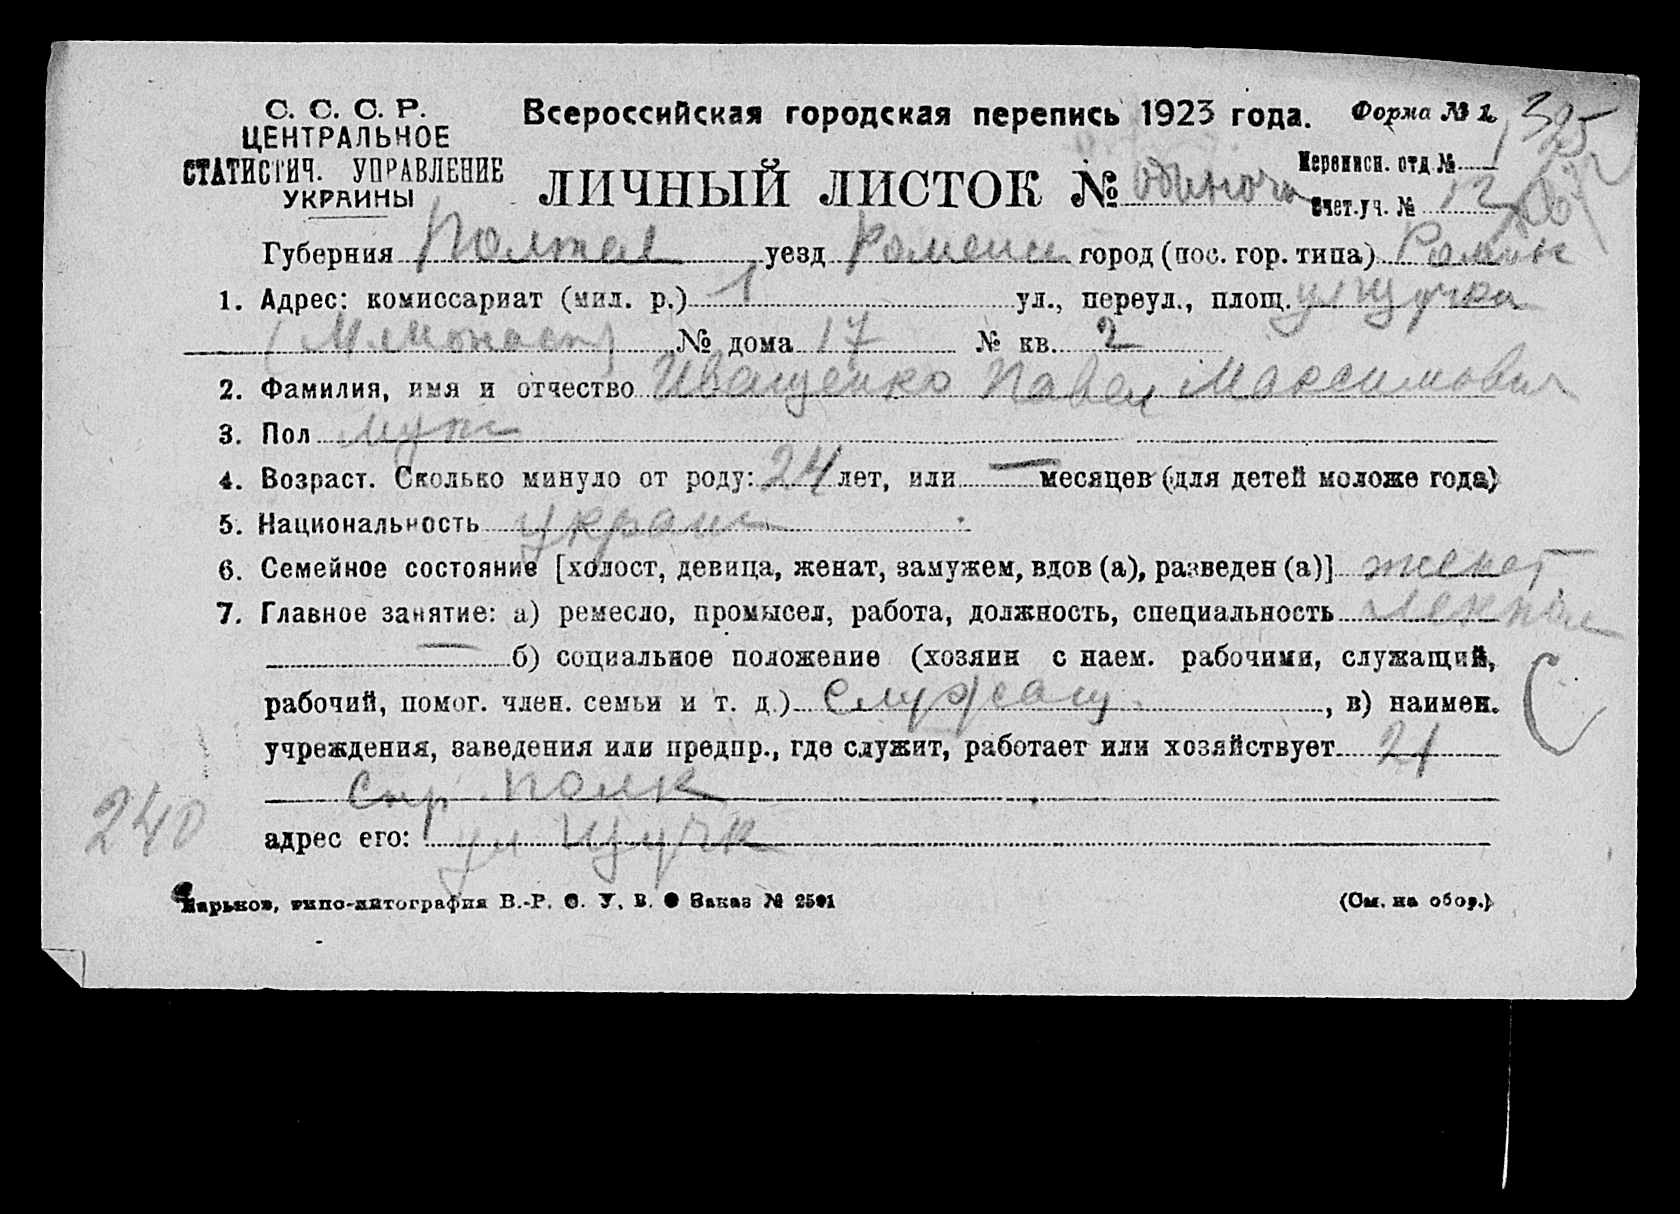 С. С. С. Р.
ЦЕНТРАЛЬНОЕ
СТАТИСТИЧ. УПРАВЛЕНИЕ
УКРАИНЫ
Всероссийская городская перепись 1923 года. Форма № 1.
325
Переписн. отд. № 1
ЛИЧНЫЙ ЛИСТОК № одиноч
Счет. уч. № 12
Губерния Полтав уезд Роменск город (пос. гор. типа) Ромны
1. Адрес: комиссариат (мил. р.) 1 ул., переул., площ.
№ дома 17 № кв. 2
2. Фамилия, имя и отчество Иващенко Павел Максимович
3. Пол муж
4. Возраст. Сколько минуло от роду: 24 лет, или — месяцев (для детей моложе года)
5. Национальность украин
6. Семейное состояние [холост, девица, женат, замужем, вдов (а), разведен (а)] женат
7. Главное занятие: а) ремесло, промысел, работа, должность, специальность
— б) социальное положение (хозяин с наем. рабочими, служащий,
рабочий, помог. член. семьи и т. д.) служащ. , в) наимен.
С
учреждения, заведения или предпр., где служит, работает или хозяйствует 21
стр. полк
240
адрес его: ул
Харьков, типо-литография В.-Р. С. У. В. ● Заказ № 2591
(См. на обор.)